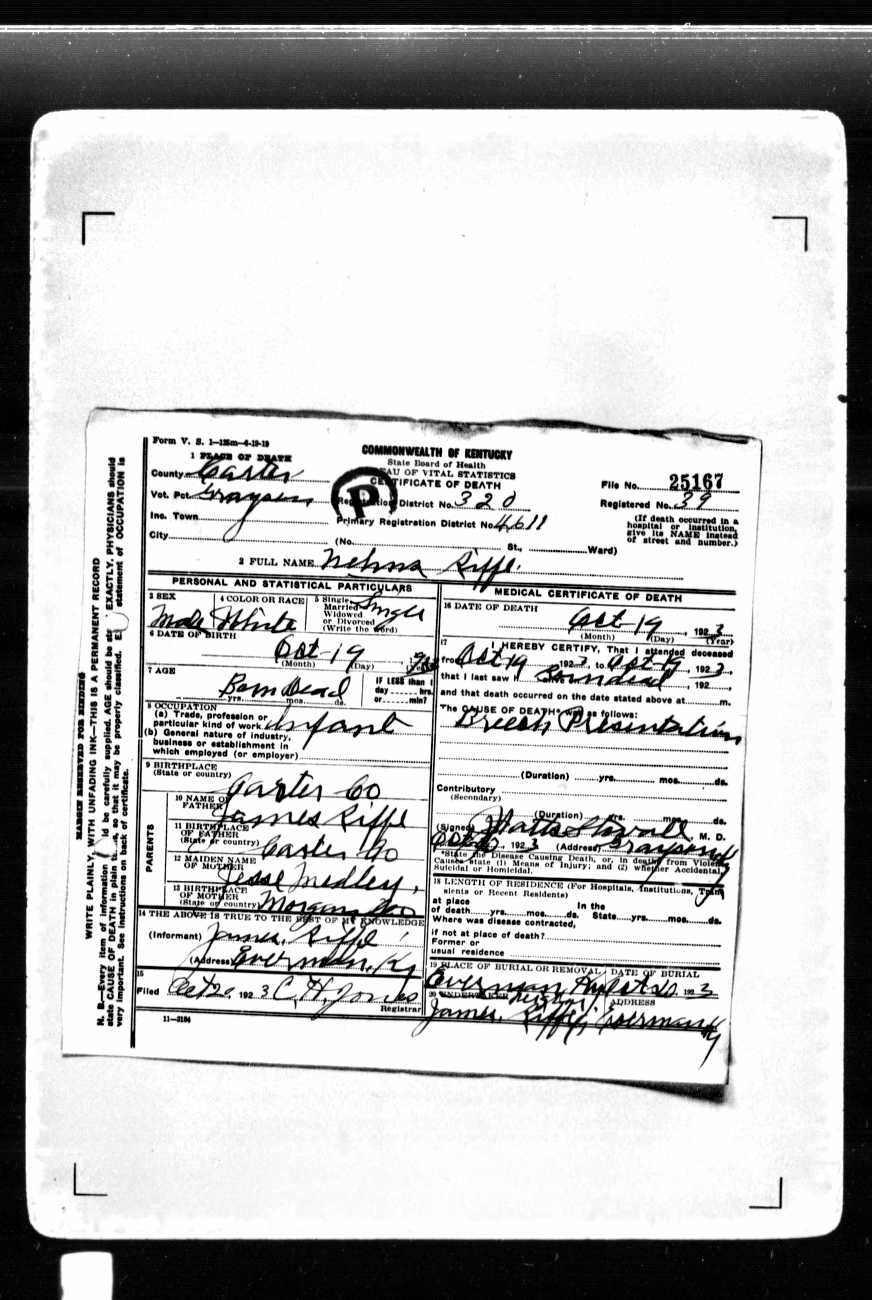 Form V. S. 1—125m—4-19-19
1 PLACE OF DEATH
County Carter
Vot. Pct. Grayson
Inc. Town
City
(No. St., Ward)
COMMONWEALTH OF KENTUCKY
State Board of Health
BUREAU OF VITAL STATISTICS
CERTIFICATE OF DEATH
P
Registration District No. 320
Primary Registration District No. 4611
File No. 25167
Registered No. 39
(If death occurred in a
hospital or institution,
give its NAME instead
of street and number.)
2 FULL NAME Riffe.
PERSONAL AND STATISTICAL PARTICULARS
3 SEX
Male
4 COLOR OR RACE
White
5 Single
Married
Widowed
or Divorced
(Write the word)
Single
6 DATE OF BIRTH
Oct 19
(Month) (Day)
7 AGE
Born Dead
yrs. mos. ds.
IF LESS than 1
day hrs.
or min?
8 OCCUPATION
(a) Trade, profession or
particular kind of work Infant
(b) General nature of industry,
business or establishment in
which employed (or employer)
9 BIRTHPLACE
(State or country)
Carter Co
PARENTS
10 NAME OF
FATHER
James Riffe
11 BIRTHPLACE
OF FATHER
(State or country) Carter Co
12 MAIDEN NAME
OF MOTHER
Jesse Medley,
13 BIRTHPLACE
OF MOTHER
(State or country) Morgan Co
14 THE ABOVE IS TRUE TO THE BEST OF MY KNOWLEDGE
(Informant) James. Riffe
(Address) Everman, Ky
15
Filed Oct 20, 1923 C. H. Jones
Registrar
11—3184
MEDICAL CERTIFICATE OF DEATH
16 DATE OF DEATH
Oct 19, 1923
(Month) (Day) (Year)
17 I HEREBY CERTIFY, That I attended deceased
from Oct 19 1923, to Oct 19, 1923
that I last saw h alive on Born dead, 192
and that death occurred on the date stated above at m.
The CAUSE OF DEATH* was as follows:
Breech Presentation
(Duration) yrs. mos. ds.
Contributory
(Secondary)
(Duration) yrs. mos. ds.
(Signed) Watts Stovall, M. D.
1923 (Address) Grayson Ky
*State the Disease Causing Death, or, in deaths from Violent
Causes state (1) Means of Injury; and (2) whether Accidental,
Suicidal or Homicidal.
18 LENGTH OF RESIDENCE (For Hospitals, Institutions, Transients
or Recent Residents)
At place
of death yrs. mos. ds. In the State yrs. mos. ds.
Where was disease contracted,
if not at place of death?
Former or
usual residence
19 PLACE OF BURIAL OR REMOVAL
Everman Ky
DATE OF BURIAL
Oct 20 1923
20 UNDERTAKER
James, Riffe,
ADDRESS
Everman Ky
MARGIN RESERVED FOR BINDING
WRITE PLAINLY, WITH UNFADING INK—THIS IS A PERMANENT RECORD
N. B.—Every item of information should be carefully supplied. AGE should be stated EXACTLY. PHYSICIANS should
state CAUSE OF DEATH in plain terms, so that it may be properly classified. Exact statement of OCCUPATION is
very important. See instructions on back of certificate.